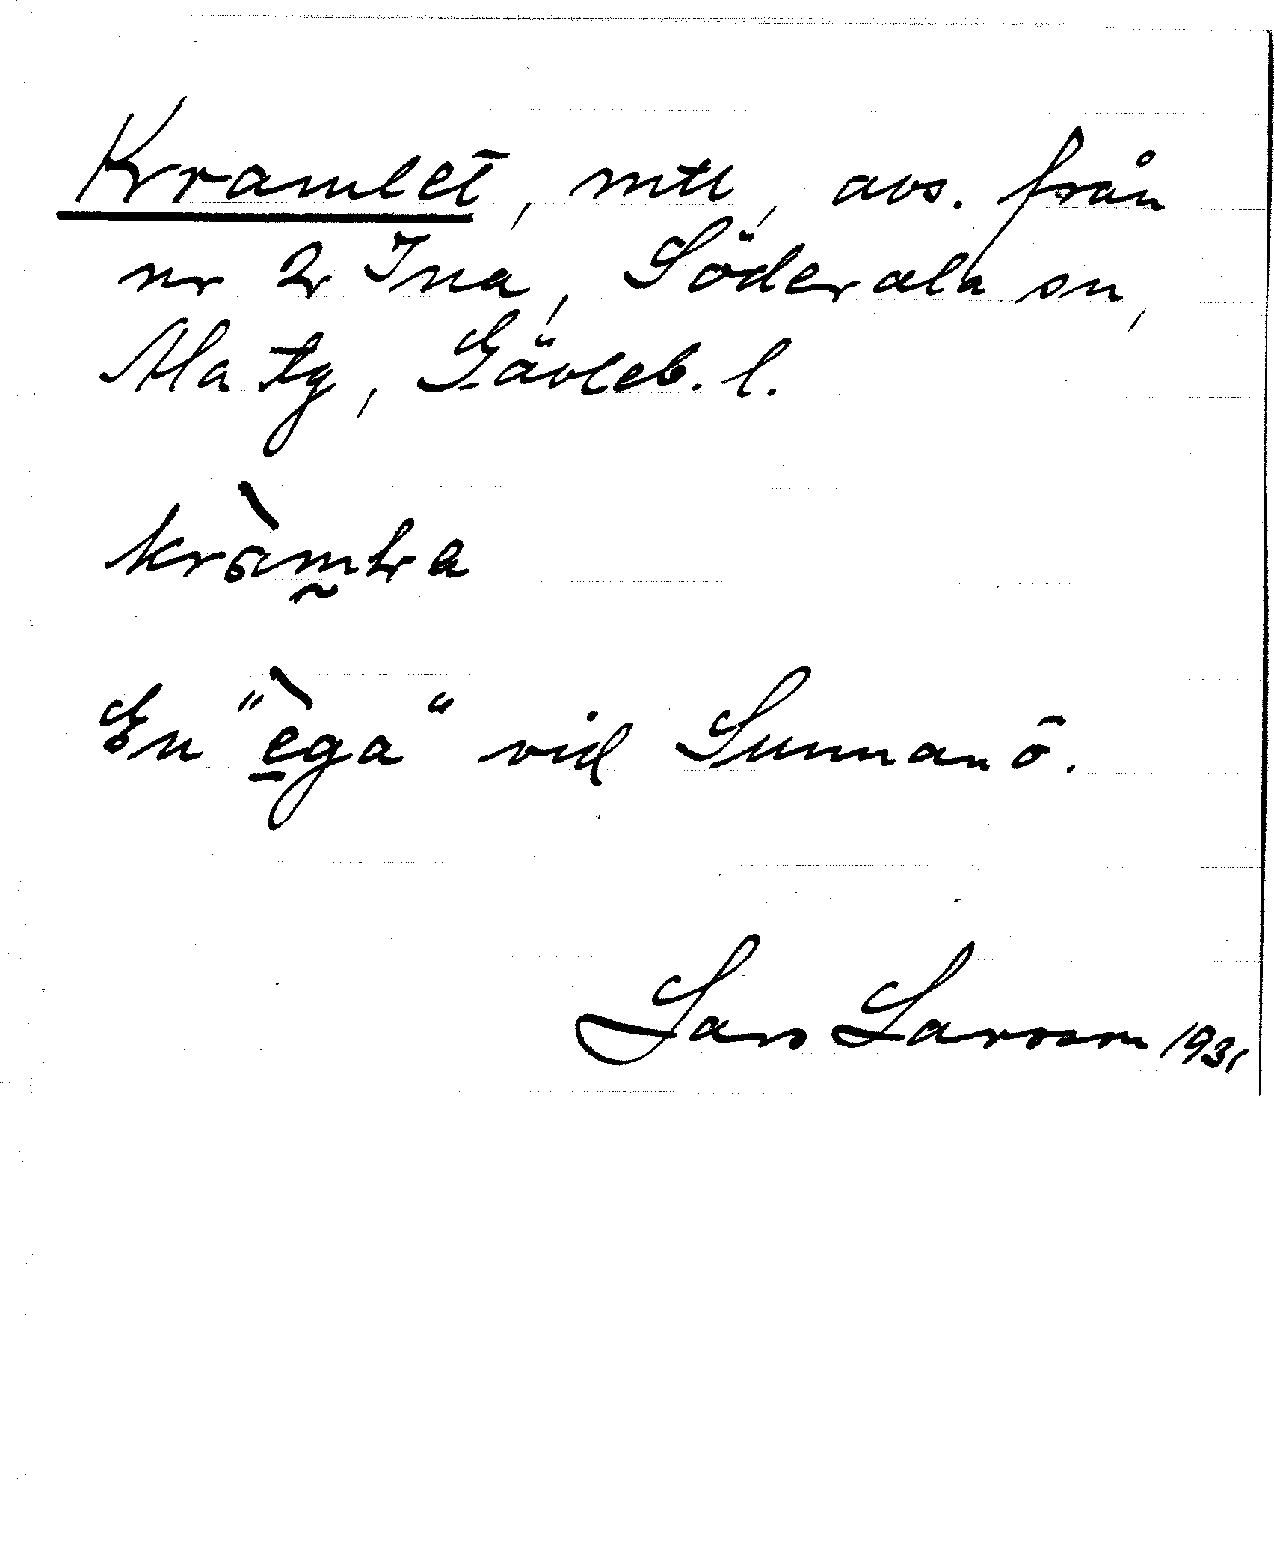 Kramlet, mtl, avs. från
nr 2 Ina, Söderala sn,
Ala tg, Gävleb. l.
En "èga" vid Sunnanö.
Lars Larsson 1931